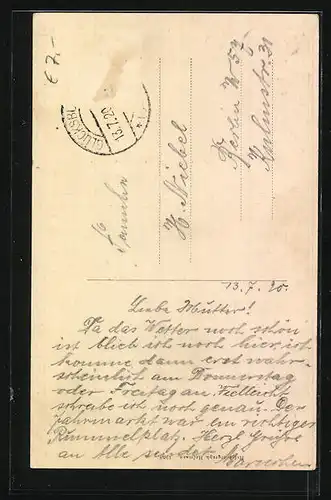 € 7.-
GLÜCKSB
13.7.20
Familie
H. Niebel
Berlin W 57
Kulmstr. 31
13.7.20.
Liebe Mutter!
Da das Wetter noch schön
ist blieb ich noch hier, ich
komme dann erst wahr-
scheinlich am Donnerstag
oder Freitag an. Vielleicht
schreibe ich noch genau. Der
Jahrmarkt war ein richtiger
Rummelplatz. Herzl Grüße
an Alle sendet